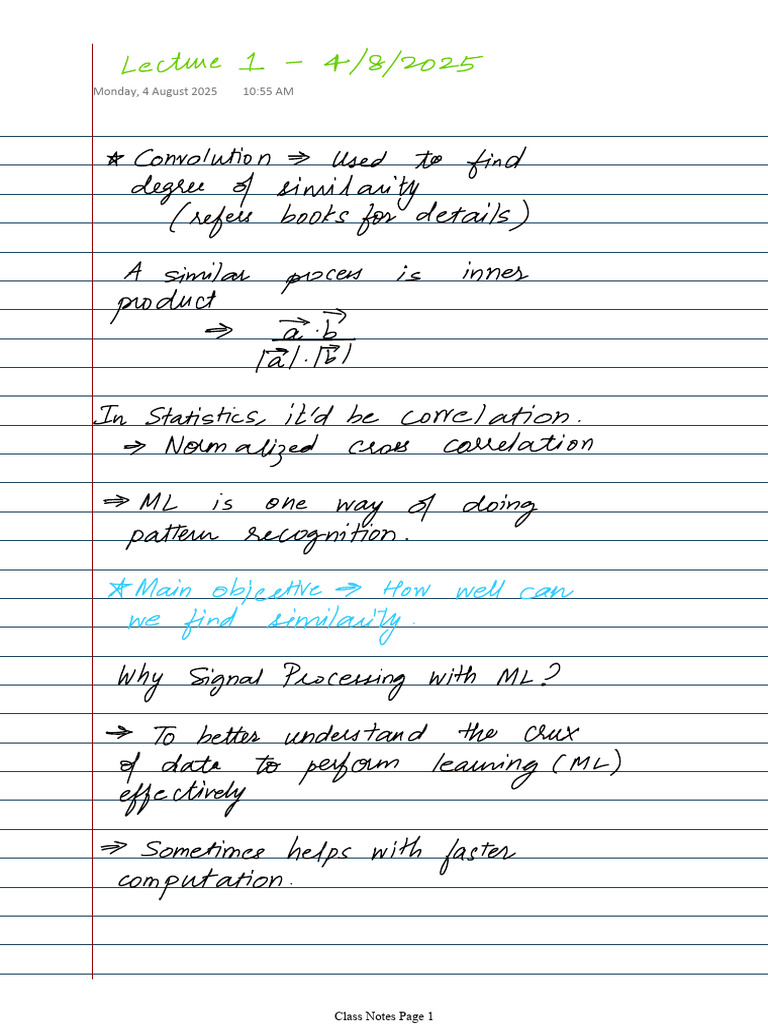 Lecture 1 - 4/8/2025
Monday, 4 August 2025 10:55 AM
* Convolution ⇒ Used to find
degree of similarity
(refers books for details)
A similar process is inner
product
⇒ a⃗ · b⃗
|a⃗| · |b⃗|
In Statistics, it'd be correlation.
⇒ Normalized cross correlation
⇒ ML is one way of doing
pattern recognition.
* Main objective ⇒ How well can
we find similarity.
Why Signal Processing with ML?
→ To better understand the crux
of data to perform learning (ML)
effectively
⇒ Sometimes helps with faster
computation.
Class Notes Page 1